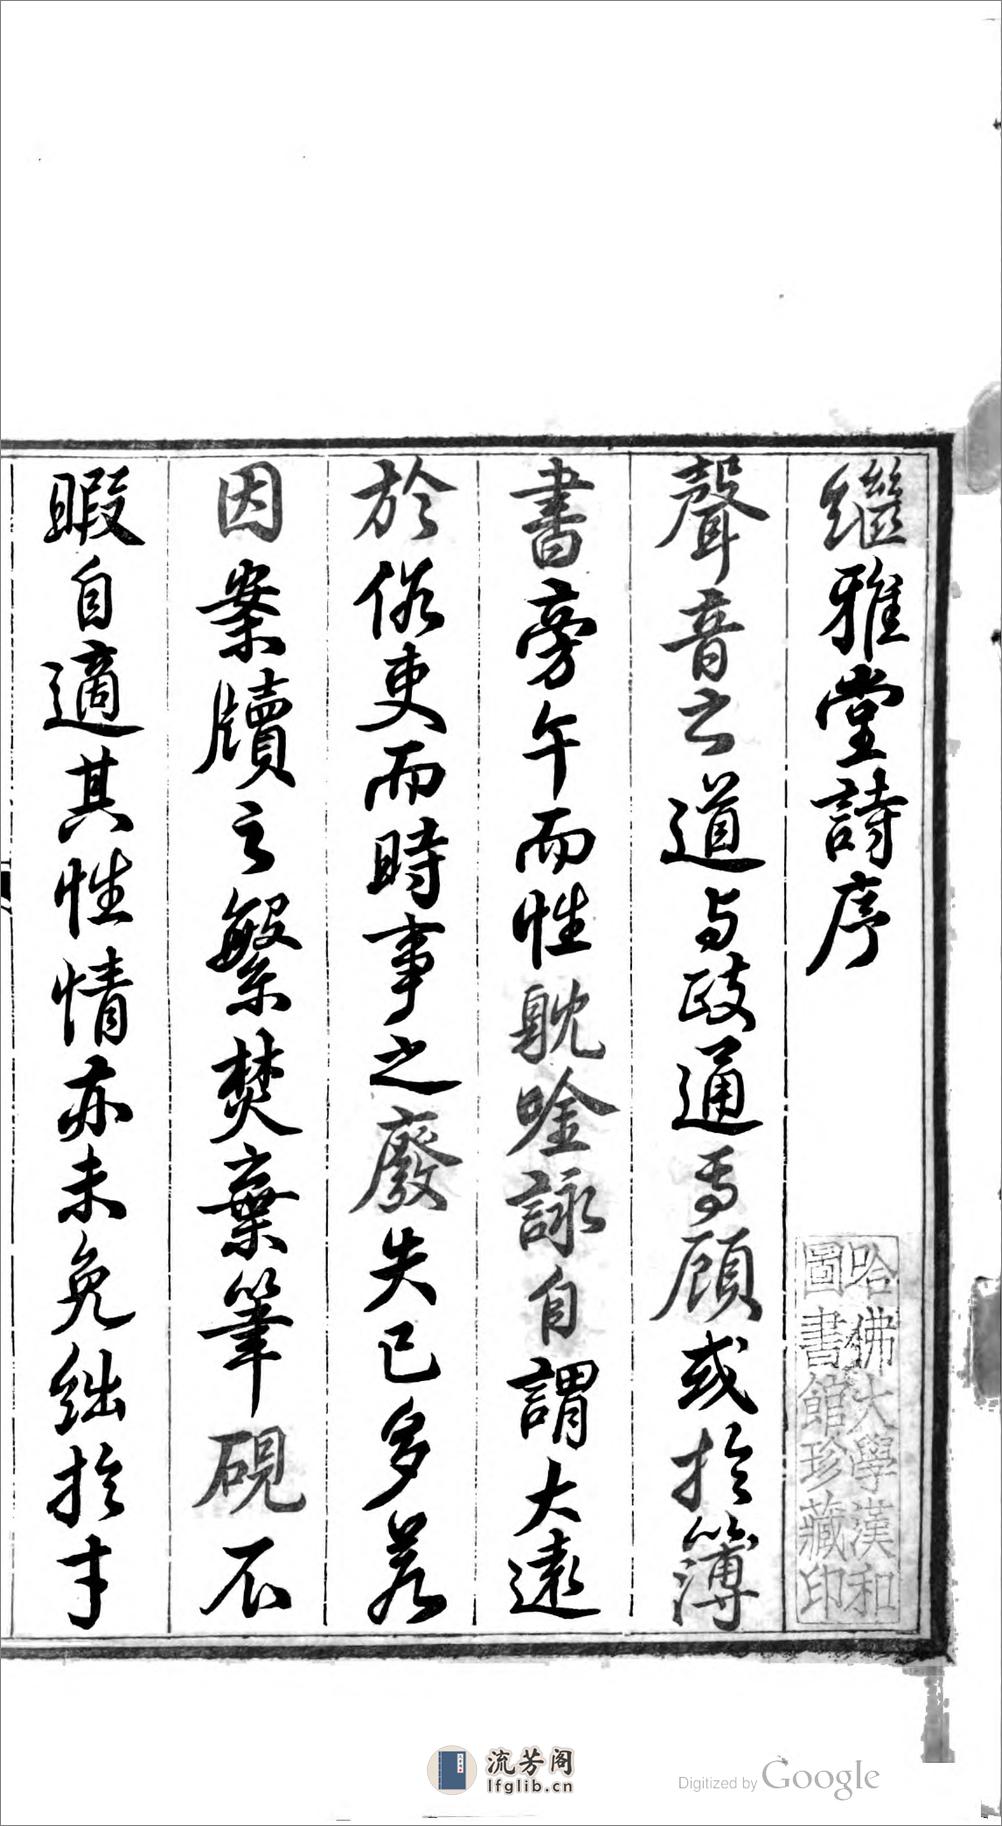 繼雅堂詩序
聲音之道与政通焉顧或扵簿
書旁午而性躭唫詠自謂大遠
於俗吏而時事之廢失已多若
因案牘之繁焚棄筆硯不
暇自適其性情亦未免絀扵才
哈佛大學漢和
圖書館珍藏印
流芳阁
lfglib.cn
Digitized by Google